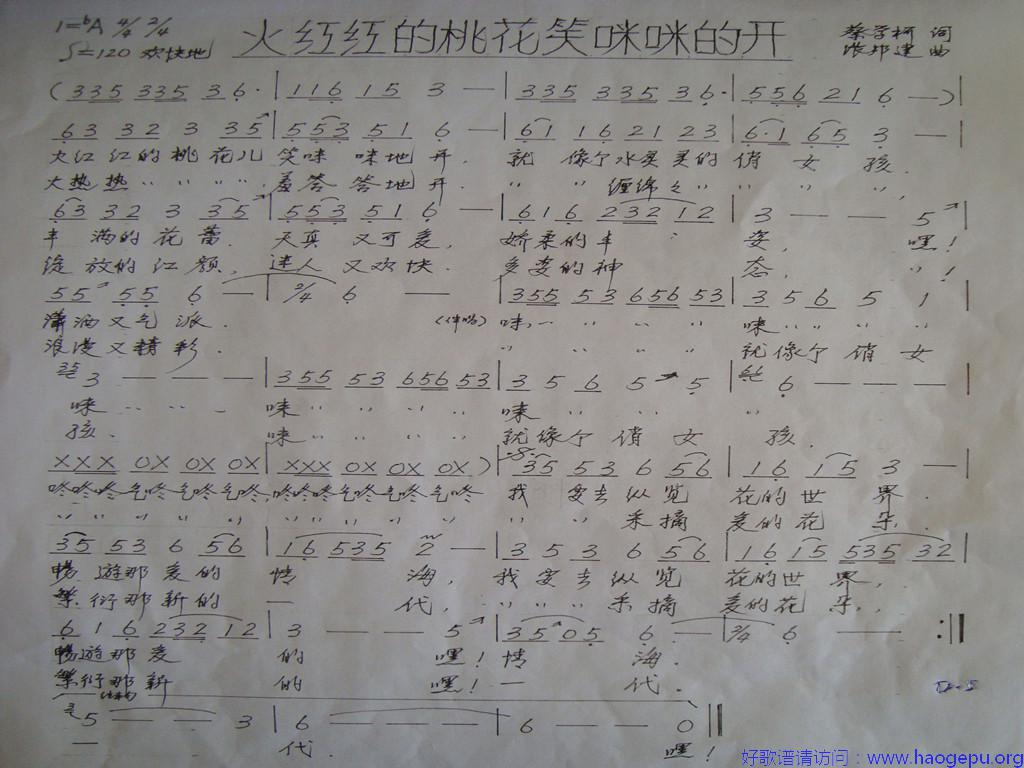 1=ᵇA 4/4 2/4
♩=120 欢快地
火红红的桃花笑咪咪的开
词
曲
(335 335 36· | 116 15 3 — | 335 335 36· | 556 21 6 —) |
63 32 3 35 | 553 51 6 — | 61 16 21 23 | 6·1 65 3 — |
火红红的桃花儿笑咪咪地开. 就像个水灵灵的俏女孩.
火热热 〃 〃 〃 〃, 羞答答地开. 〃 〃 缠绵之 〃 〃 〃 〃,
63 32 3 35 | 553 51 6 — | 616 232 12 | 3 — — 5
丰满的花蕾. 天真又可爱, 娇柔的丰姿, 嘿!
绽放的红颜, 迷人又欢快. 多变的神态, 〃!
55 55 6 — | 2/4 6 — | 355 53 656 53 | 3 5 6 5 1
潇洒又气派. (伴唱) 咪 〃 〃 〃 〃 咪 〃 〃 〃 〃
浪漫又精彩. 〃 〃 〃 〃 就像个俏女
3 — — — | 355 53 656 53 | 3 5 6 5 5 | 6 — — — |
咪 〃 〃 〃 咪 〃 〃 〃 〃 咪 〃 〃 〃 〃
孩. 咪 〃 〃 〃 〃 就像个俏女孩.
XXX OX OX OX | XXX OX OX OX) | 35 53 6 56 | 16 15 3 — |
咚咚咚乞咚乞咚乞咚, 咚咚咚乞咚乞咚乞咚 我要去纵览花的世界.
〃 〃 〃 〃, 〃 〃 〃 〃 〃 〃 〃 采摘爱的花朵.
35 53 6 56 | 16 535 2 — | 3 5 3 6 56 | 16 15 535 32 |
畅遊那爱的情海, 我要去纵览花的世界,
繁衍那新的一代, 〃 〃 〃 采摘爱的花朵,
6 1 6 232 12 | 3 — — 5 | 35 05 6 — | 2/4 6 — :||
畅遊那爱的嘿! 情海.
繁衍那新的嘿! 一代.
5 — — 3 | 6 — — — | 6 — — 0 ||
一代. 嘿!
好歌谱请访问：www.haogepu.org